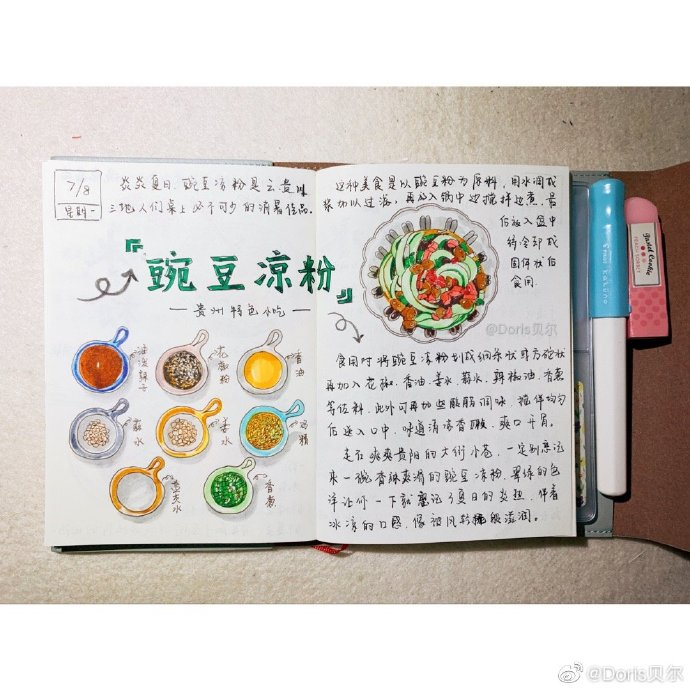 7/8
星期一
炎炎夏日，豌豆凉粉是云贵川
三地人们桌上必不可少的消暑佳品。
『豌豆凉粉』
—贵州特色小吃—
油泼辣子
花椒粉
香油
蒜水
姜水
鸡精
香葱
这种美食是以豌豆粉为原料，用水调成
浆加以过滤，再放入锅中边搅拌边煮，最
后放入盆中
待冷却成
固体状后
食用.
@Doris贝尔
食用时将豌豆凉粉划成细条状或方砣状
再加入花椒、香油、姜水、蒜水、辣椒油、香葱
等佐料，此外可再加些酸醋调味，搅拌均匀
后送入口中，味道清凉香嫩，爽口开胃。
走在爽爽贵阳的大街小巷，一定别忘记
来一碗香辣爽滑的豌豆凉粉，翠绿的色
泽让你一下就忘记了夏日的炎热，伴着
冰凉的口感，像被风轻拂般滋润。
Pilot Kakuno
@Doris贝尔